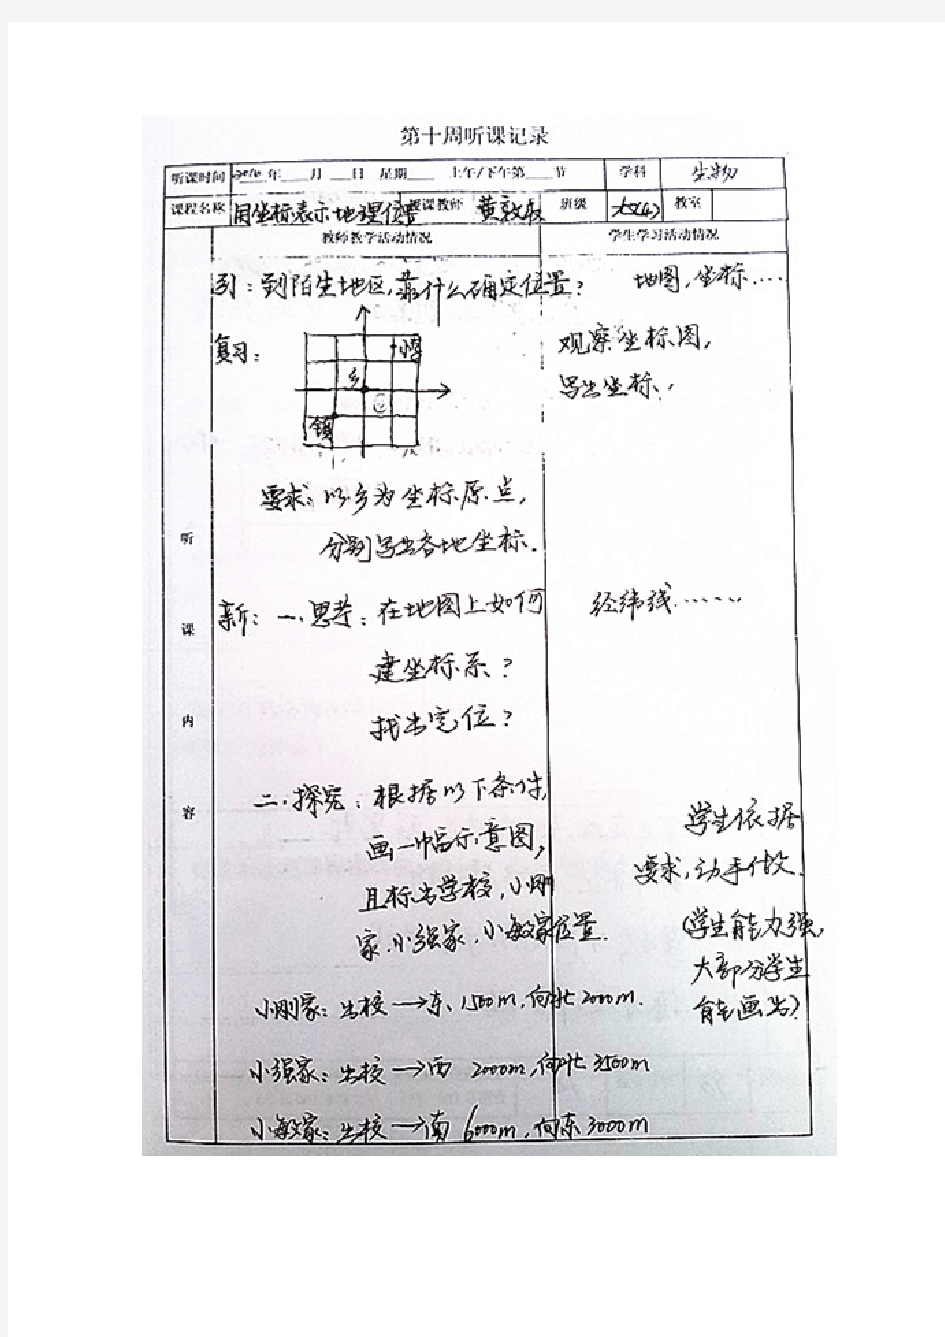 第十周听课记录
听课时间 年 月 日 星期 上午/下午第 节 学科 生物
课程名称 用坐标表示地理位置 授课教师 黄 班级 教室
教师教学活动情况 学生学习活动情况
引:到陌生地区,靠什么确定位置? 地图,坐标....
复习: 观察坐标图,
写出坐标.
乡
镇
要求:以乡为坐标原点,
分别写出各地坐标.
听课内容
新:一.思考:在地图上如何 经纬线......
建坐标系?
找出定位?
二.探究:根据以下条件, 学生依据
画一幅示意图, 要求,动手做.
且标出学校,小刚 (学生能力强,
家.小强家.小敏家位置. 大部分学生
能画出)
小刚家:出校→东、1500m,向北2000m.
小强家:出校→西 2000m,向北3500m
小敏家:出校→南 6000m,向东3000m